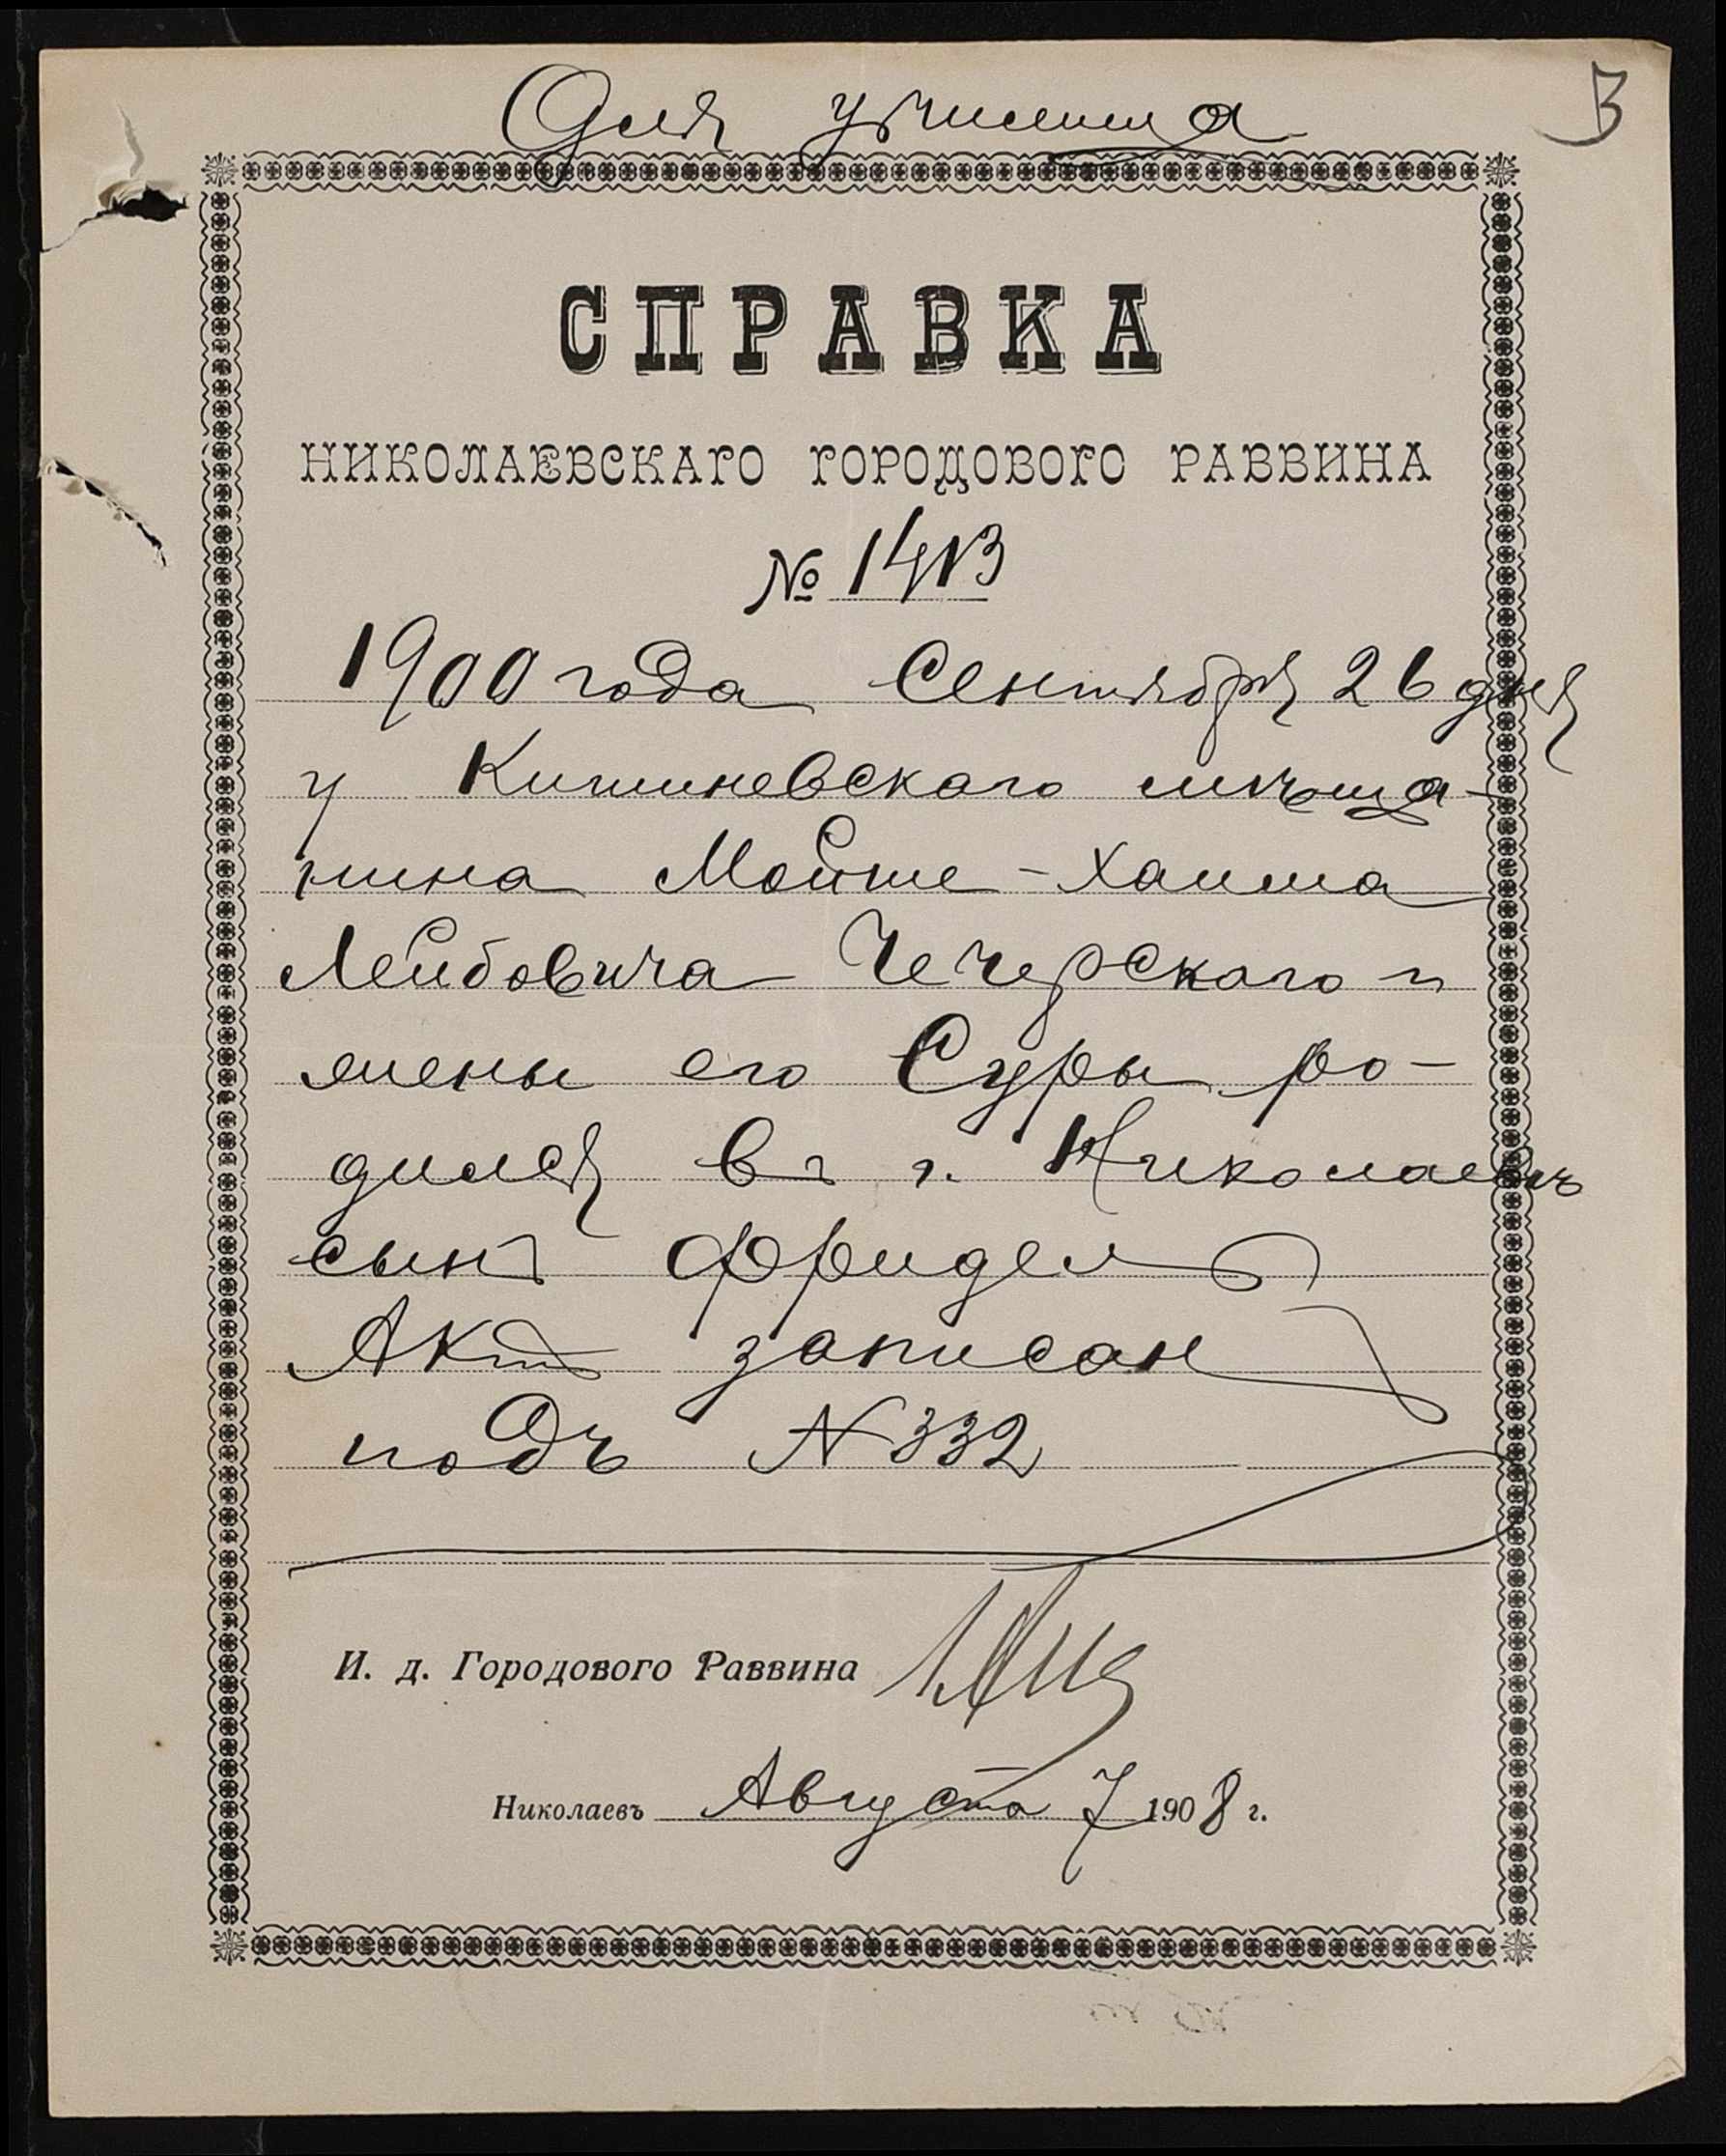 Для училища
В
СПРАВКА
НИКОЛАЕВСКАГО ГОРОДОВОГО РАВВИНА
№ 1413
1900 года Сентября 26 дня
у Кишиневскаго мѣща-
нина Мойше-Хаима
Лейбовича Чечерскаго и
жены его Суры ро-
дился въ г. Николаевѣ
сынъ Фридель
Актъ записан
подъ N 332
И. д. Городового Раввина
Николаевъ Августа 7 1908 г.